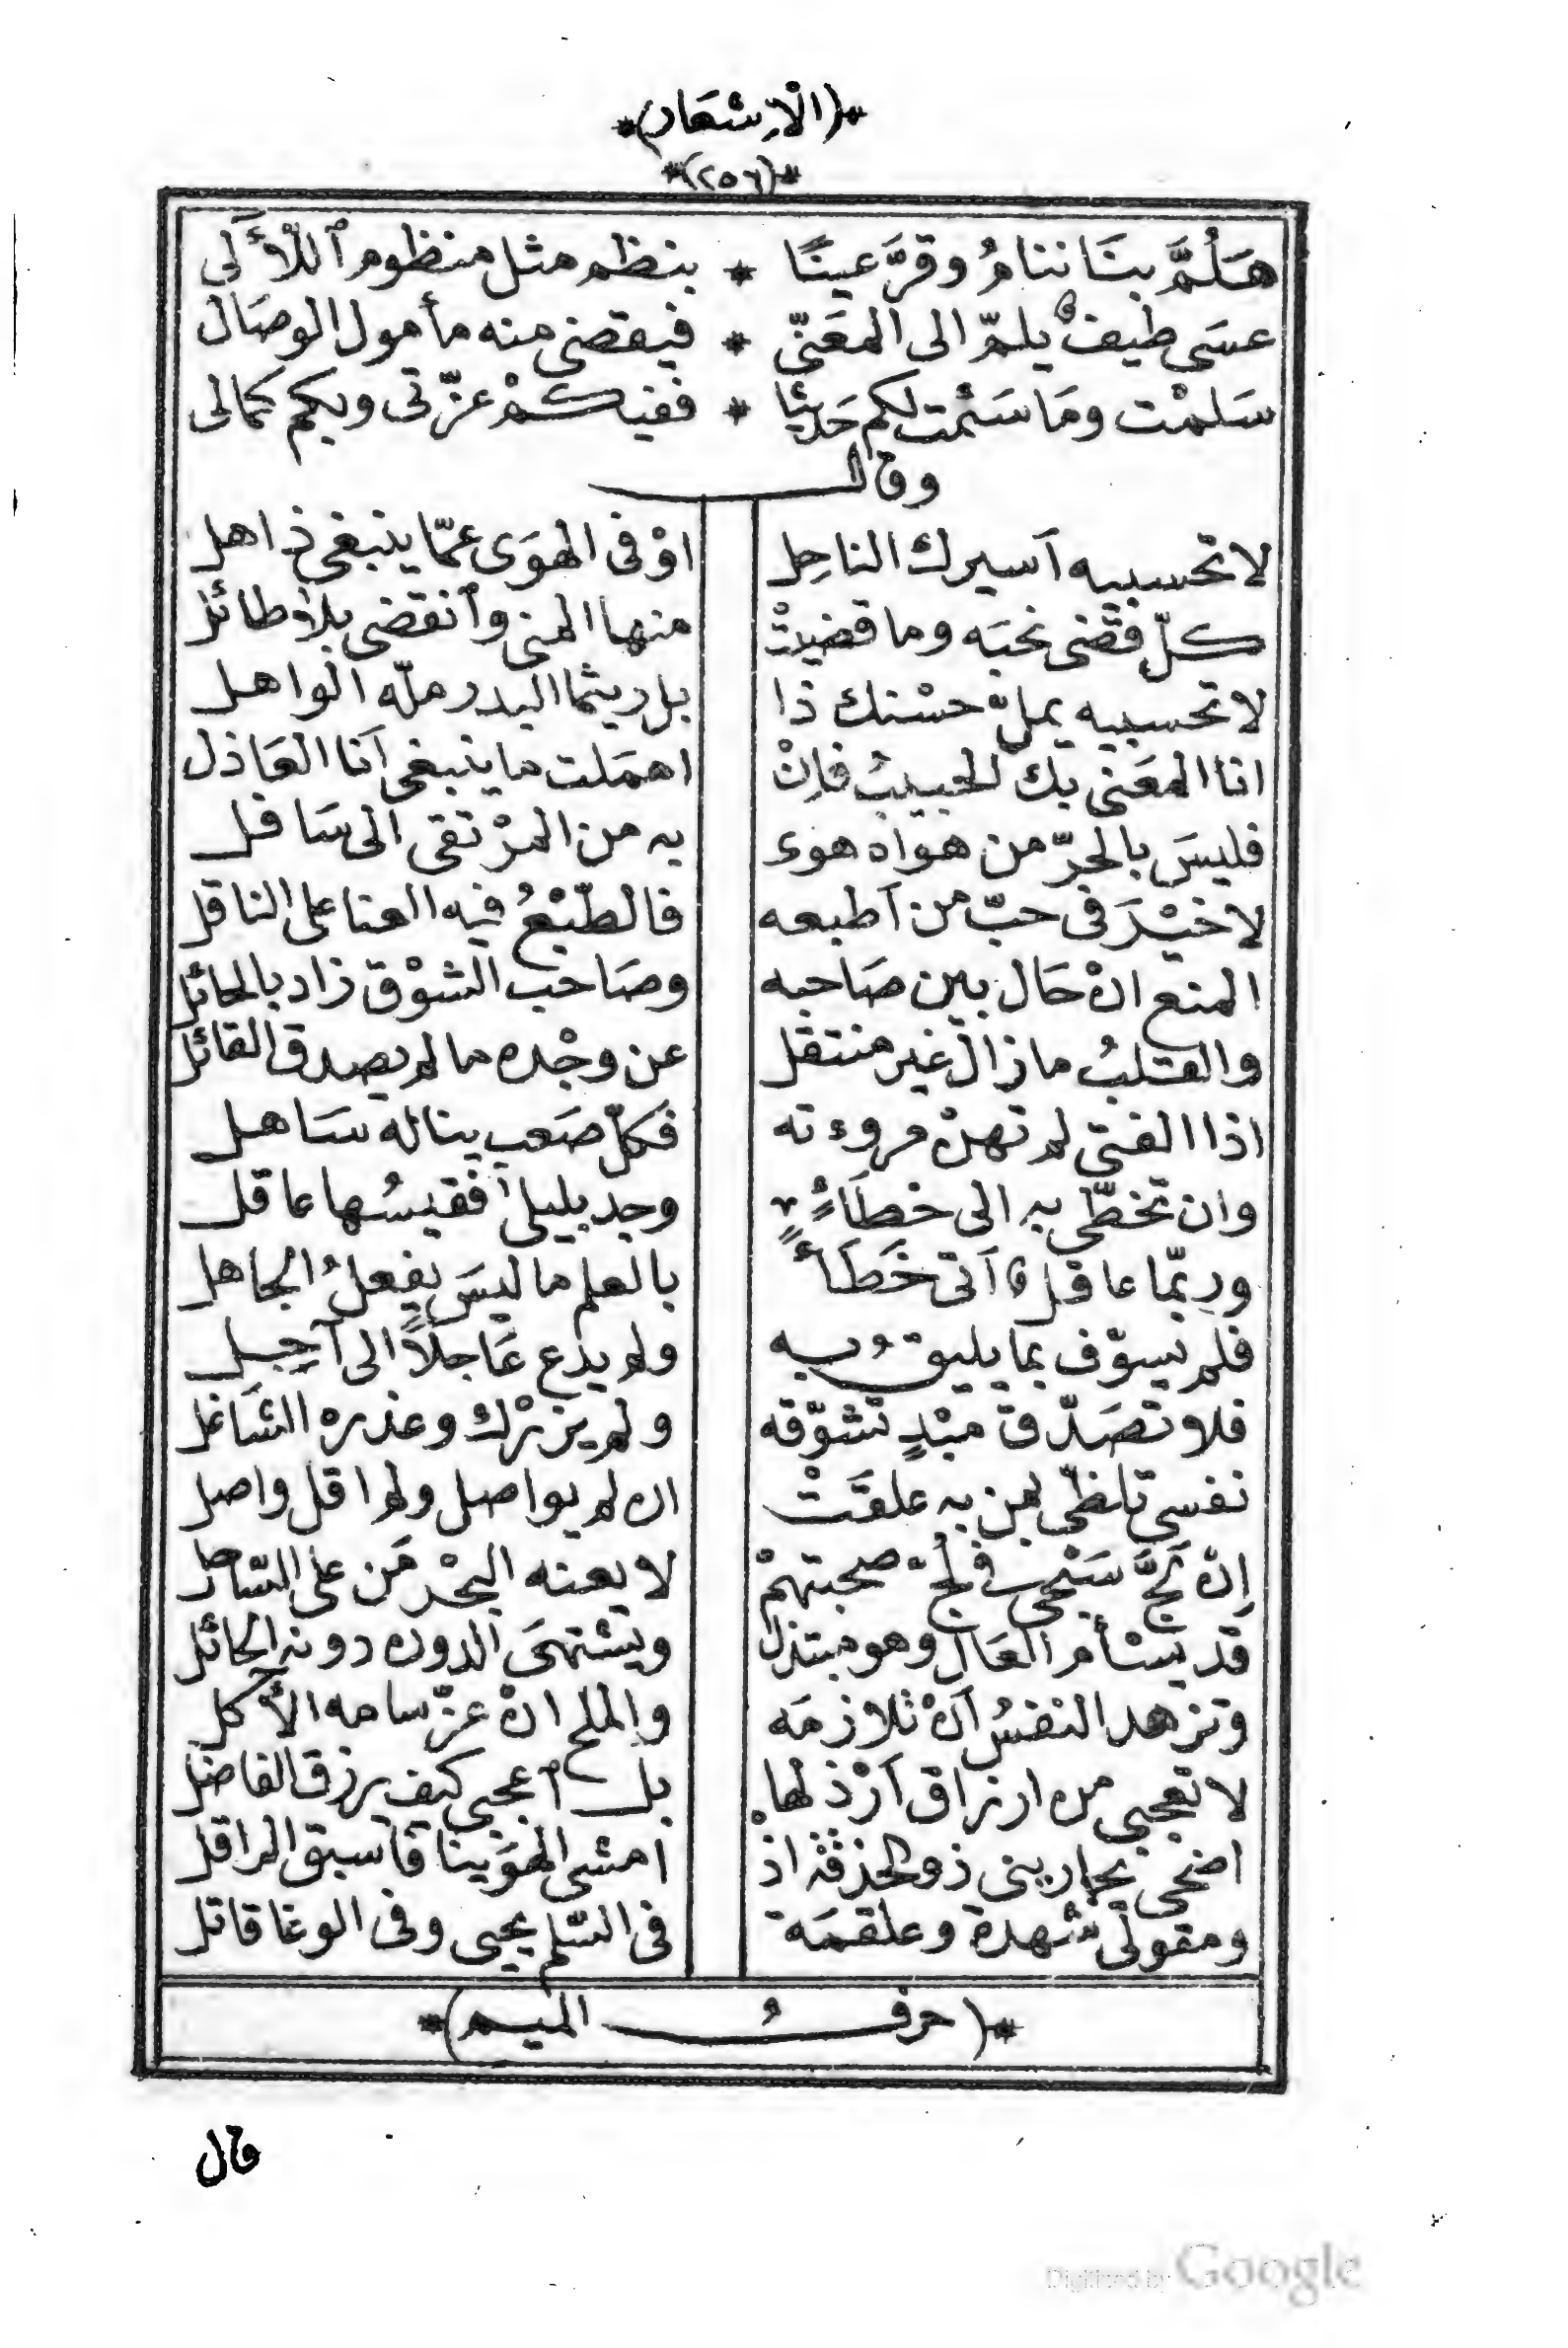 *(الْاِشعَار)*
*(٢٥٦)*
هَلُمَّ بنَا ننامُ وقرَّ عينًا * بنظم مثل منظوم ٱللّأَلى
عسَى طيفٌ يلمّ الى المعَنّى * فيقضى منه مأمول الوصَال
سَلمْت ومَا سَئمت لكم حَديثا * ففيكمْ عزّتى وبكم كمالى
وقال
لا تحسبيه اَسيرك الناحِل اوْ فى الهوَى عمّا ينبغى ذاهل
كلّ قضى نحبَه وما قضيتْ منها المنى وٱنقضى بلا طائل
لا تحسبيه يملّ حسْنك ذا بل ريثما البدر ملّه الواهل
انا المعَنى بك الحبيبُ فاِنْ اهمَلت ما ينبغى اَنا العَاذل
فليسَ بالحرّ من هواه هوى به من المرْتقى الى سَافل
لا خيْرَ فى حبّ من اَطبعه فالطّبْعُ فيه العنا على الناقل
المنع انْ حَال بين صَاحبه وصَاحب الشوْق زاد بالحائل
والقلبُ ما زال غير منتقل عن وجْده ما لم يصدق القائل
اذا الفتى لم تهنْ مروءته فكلّ صَعب يناله سَاهل
وان تخطّى به الى خطَاءٍ وجد بليلى فقيسُها عاقل
وربّما عاقلٌ اَتى خَطَأً بالعلم ما ليسَ يفعلُ الجاهل
فلم يسوّف بما يليقُ به ولم يدع عَاجلاً الى آجِل
فلا تصَدّق مبْدٍ تشوّقه ولم يزرْك وعذره الشَاغل
نفسى تلظّى لمن به علقَتْ ان لم يواصل ولم اقل واصل
اِن لَجَّ سَمْعى فى لجّ صحبتهمْ لا يعنه البحْر مَن على السّاحل
قد يسْأم العَال وهو مبتذل ويشتهىَ الدون دونه الحائل
وتزهد النفسُ اَنْ تلازمَه والملح انْ عزّ سامه الأكل
لا تعجبى من ارزاق اَرْذلها بل ٱعجبى كيف يرزق الفاضل
اضحى يجارينى ذو الحذق اذْ امشى الهوَينا فاَسبق الراقل
ومقولى شهدة وعلقمَة فى السّلم يحيى وفى الوغا قاتل
*(حرفُ الميم)*
قال
Digitized by Google